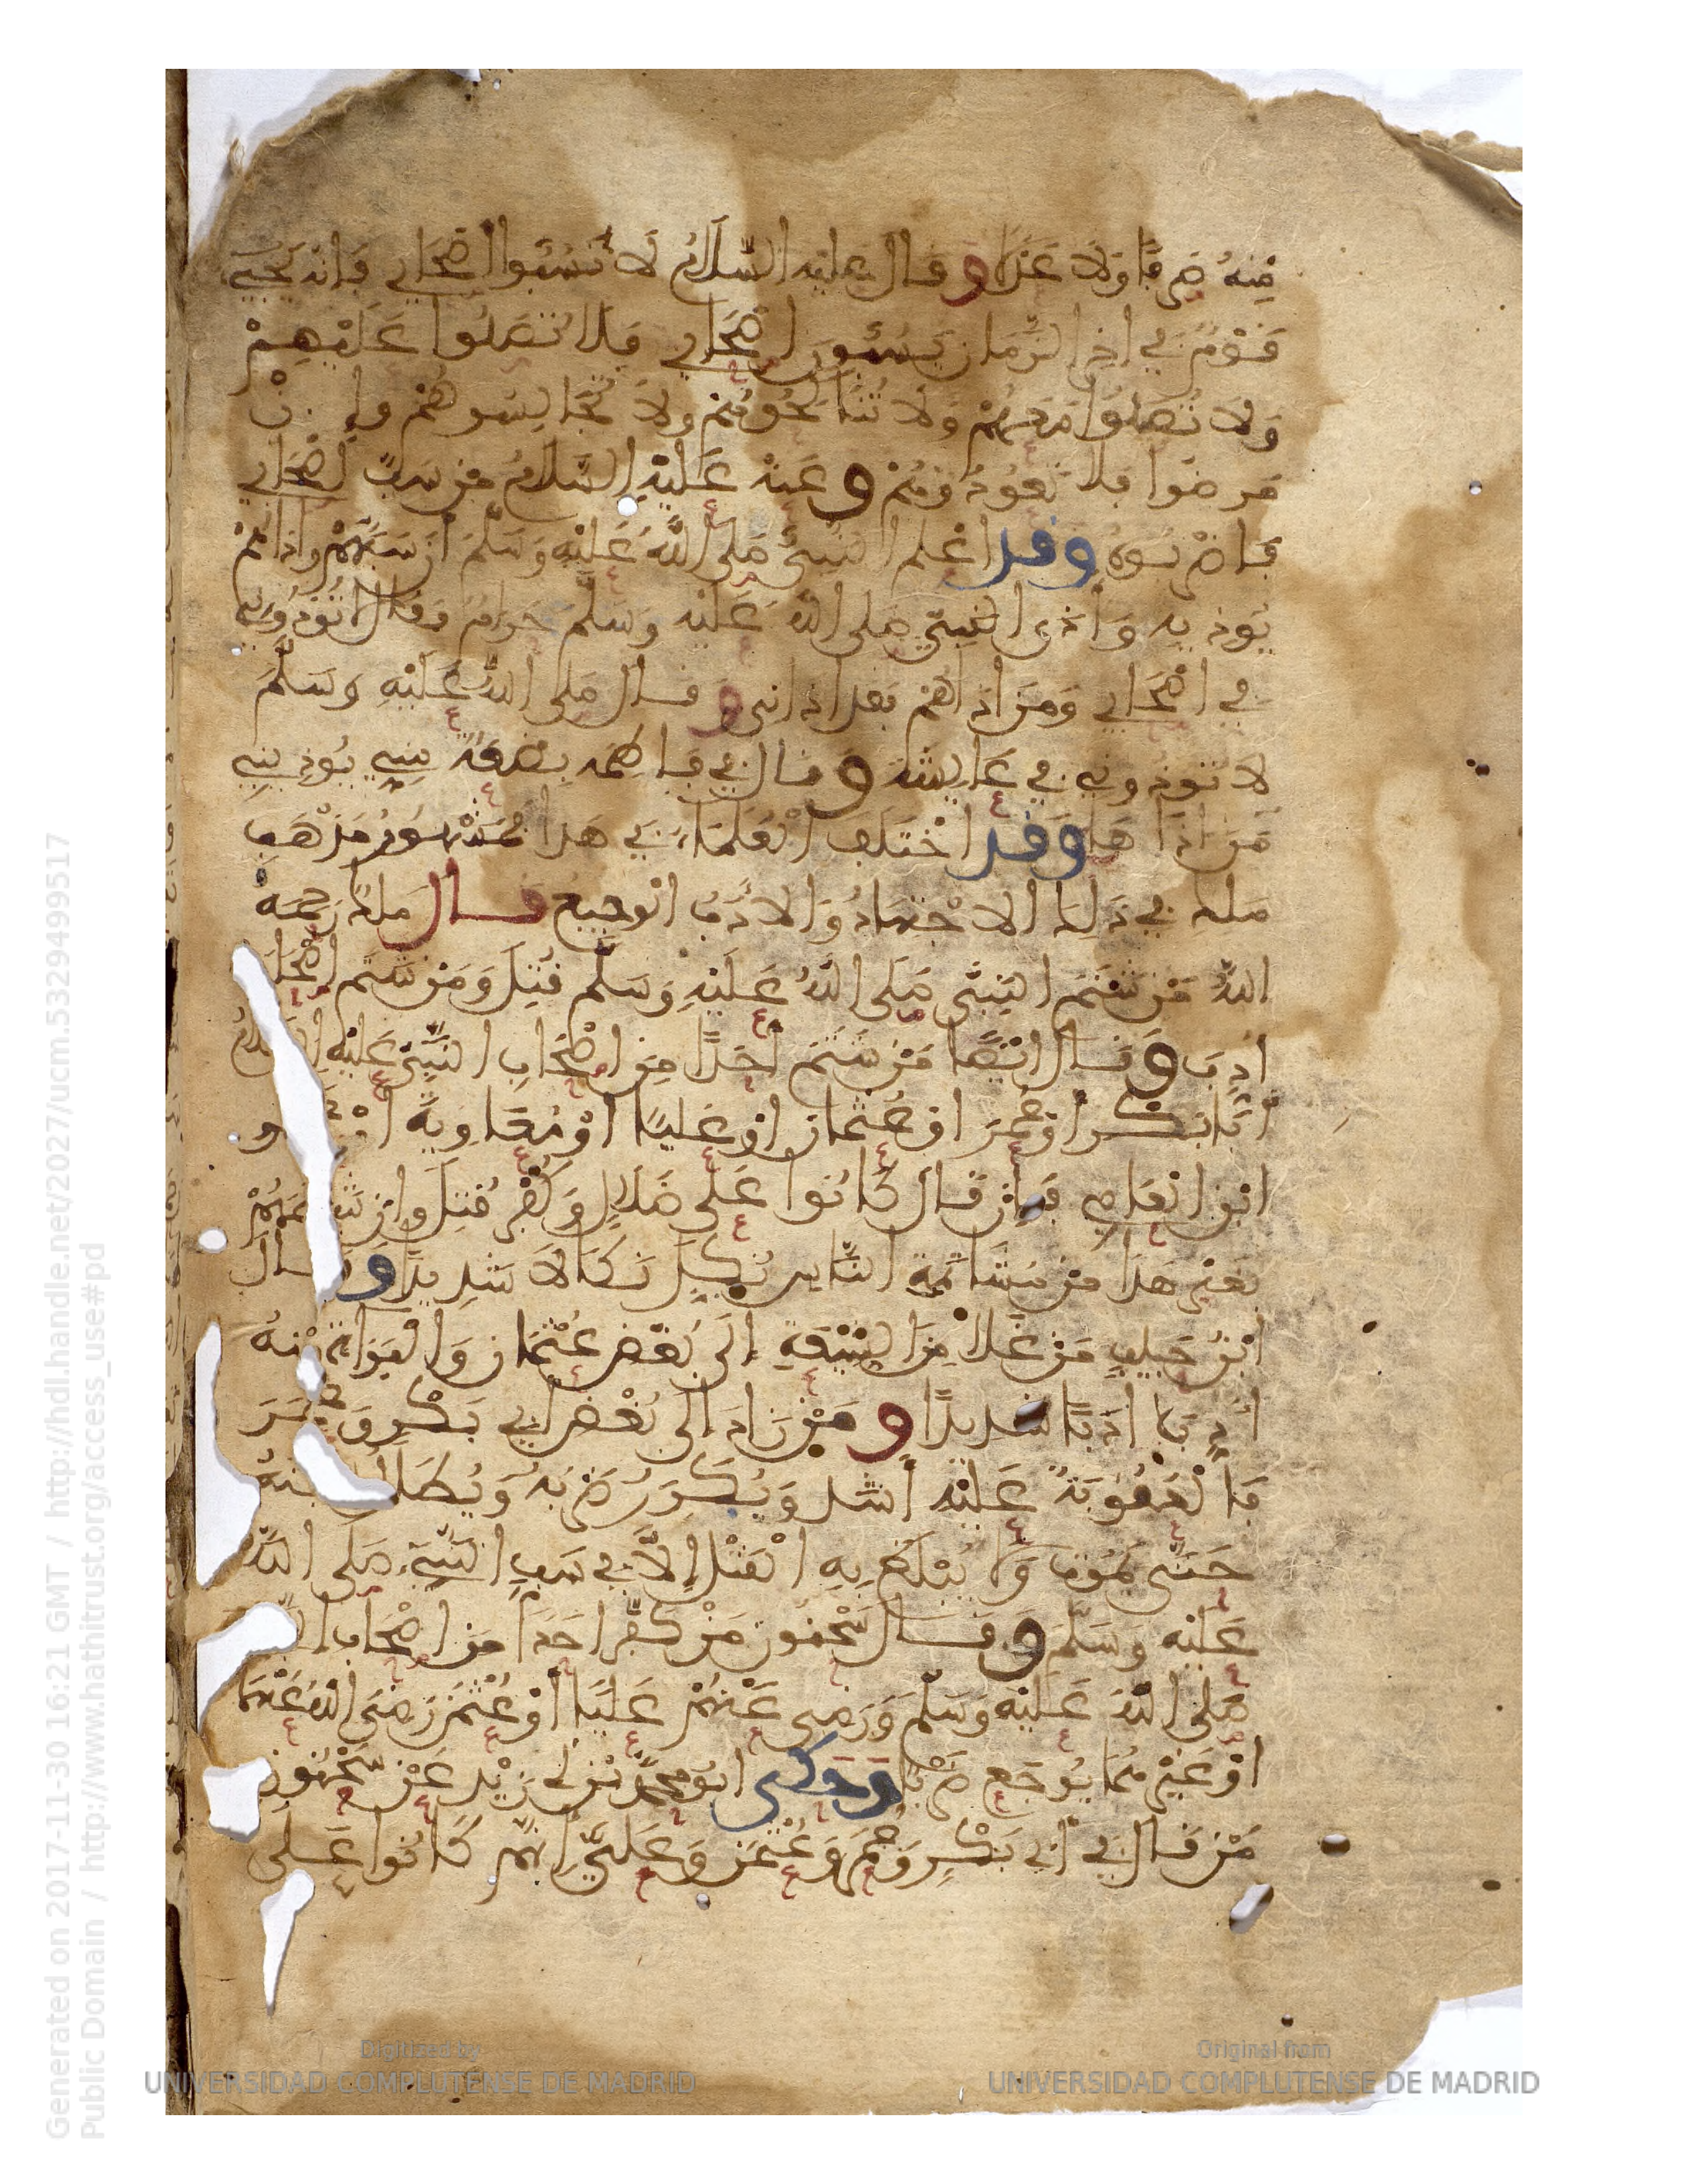 مِنْهُ صَرْفًا وَلَا عَدْلًا وَقَالَ عَلَيْهِ السَّلَامُ لَا تَسُبُّوا أَصْحَابِي فَإِنَّهُ يَجِيءُ
قَوْمٌ فِي آخِرِ الزَّمَانِ يَسُبُّونَ أَصْحَابِي فَلَا تُصَلُّوا عَلَيْهِمْ
وَلَا تُصَلُّوا مَعَهُمْ وَلَا تُنَاكِحُوهُمْ وَلَا تُجَالِسُوهُمْ وَإِنْ
مَرِضُوا فَلَا تَعُودُوهُمْ وَعَنْهُ عَلَيْهِ السَّلَامُ مَنْ سَبَّ أَصْحَابِي
فَاضْرِبُوهُ وَقَدْ أَعْلَمَ النَّبِيُّ صَلَّى اللَّهُ عَلَيْهِ وَسَلَّمَ أَنَّ سَبَّهُمْ وَأَذَاهُمْ
يُوذِيهِ وَأَذَى النَّبِيِّ صَلَّى اللَّهُ عَلَيْهِ وَسَلَّمَ حَرَامٌ وَقَالَ لَا تُوذُونِي
فِي أَصْحَابِي وَمَنْ آذَاهُمْ فَقَدْ آذَانِي وَقَالَ صَلَّى اللَّهُ عَلَيْهِ وَسَلَّمَ
لَا تُوذُونِي فِي عَائِشَةَ وَقَالَ فِي فَاطِمَةَ بِضْعَةٌ مِنِّي يُوذِينِي
مَنْ آذَاهَا وَقَدِ اخْتَلَفَ الْعُلَمَاءُ فِي هَذَا فَمَشْهُورُ مَذْهَبِ
مَلِكٍ فِي ذَلِكَ الِاجْتِهَادُ وَالْأَدَبُ الْمُوجِعُ قَالَ مَلِكٌ رَحِمَهُ
اللَّهُ مَنْ شَتَمَ النَّبِيَّ صَلَّى اللَّهُ عَلَيْهِ وَسَلَّمَ قُتِلَ وَمَنْ شَتَمَ أَصْحَابَهُ
أُدِّبَ وَقَالَ أَيْضًا مَنْ شَتَمَ أَحَدًا مِنْ أَصْحَابِ النَّبِيِّ عَلَيْهِ السَّلَامُ
أَبَا بَكْرٍ أَوْ عُمَرَ أَوْ عُثْمَانَ أَوْ عَلِيًّا أَوْ مُعَاوِيَةَ أَوْ عَمْرَو
ابْنَ الْعَاصِي فَإِنْ قَالَ كَانُوا عَلَى ضَلَالٍ وَكُفْرٍ قُتِلَ وَإِنْ شَتَمَهُمْ
بِغَيْرِ هَذَا مِنْ مُشَاتَمَةِ النَّاسِ نُكِّلَ نَكَالًا شَدِيدًا وَقَالَ
ابْنُ حَبِيبٍ مَنْ غَلَا مِنَ الشِّيعَةِ إِلَى بُغْضِ عُثْمَانَ وَالْبَرَاءَةِ مِنْهُ
أُدِّبَ أَدَبًا شَدِيدًا وَمَنْ زَادَ إِلَى بُغْضِ أَبِي بَكْرٍ وَعُمَرَ
فَالْعُقُوبَةُ عَلَيْهِ أَشَدُّ وَيُكَرَّرُ ضَرْبُهُ وَيُطَالُ سِجْنُهُ
حَتَّى يَمُوتَ وَلَا يُبْلَغُ بِهِ الْقَتْلُ إِلَّا فِي سَبِّ النَّبِيِّ صَلَّى اللَّهُ
عَلَيْهِ وَسَلَّمَ وَقَالَ سُحْنُونٌ مَنْ كَفَّرَ أَحَدًا مِنْ أَصْحَابِ
صَلَّى اللَّهُ عَلَيْهِ وَسَلَّمَ وَرَضِيَ عَنْهُمْ عَلِيًّا أَوْ عُثْمَنَ رَضِيَ اللَّهُ عَنْهُمَا
أَوْ غَيْرَهُمَا يُوجَعُ ضَرْبًا وَحَكَى أَبُو مُحَمَّدِ بْنُ أَبِي زَيْدٍ عَنْ سُحْنُونٍ
مَنْ قَالَ فِي أَبِي بَكْرٍ وَعُمَرَ وَعُثْمَنَ وَعَلِيٍّ إِنَّهُمْ كَانُوا عَلَى
Generated on 2017-11-30 16:21 GMT / http://hdl.handle.net/2027/ucm.5329499517
Public Domain / http://www.hathitrust.org/access_use#pd
Digitized by
UNIVERSIDAD COMPLUTENSE DE MADRID
Original from
UNIVERSIDAD COMPLUTENSE DE MADRID